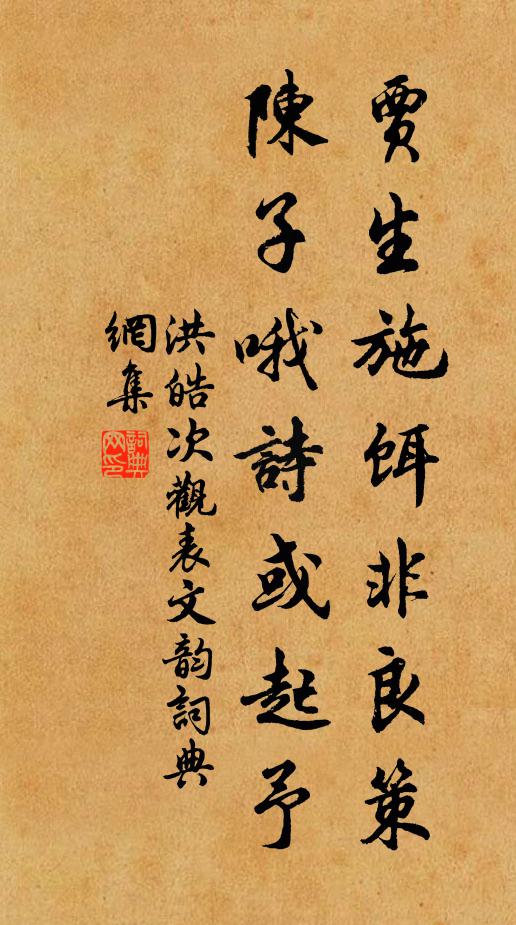 賈生施餌非良策
陳子哦詩或起予
洪皓次觀表文韵詞典
網集
詞典
网印